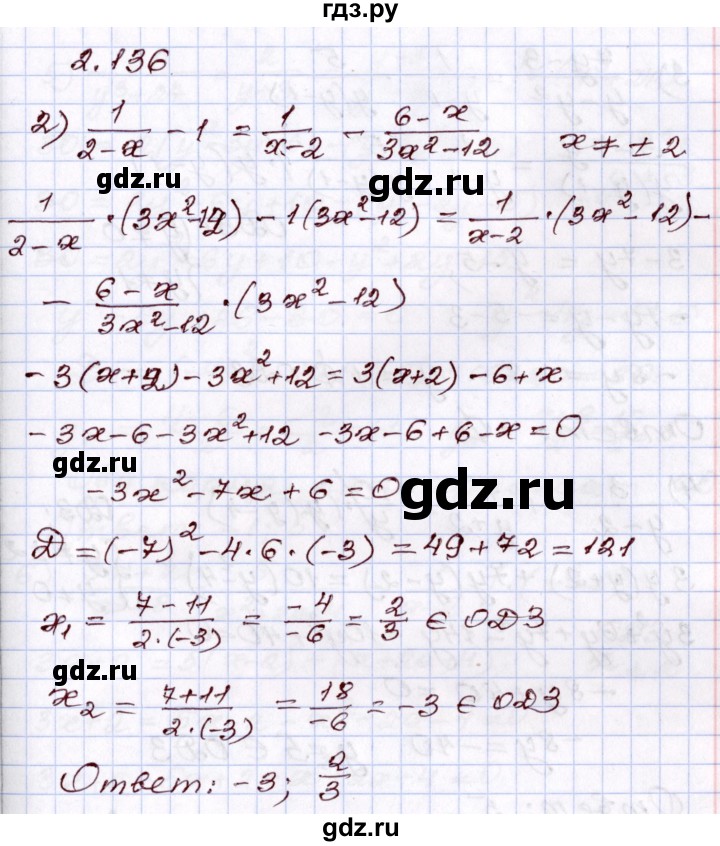 гдз.ру
2.136
2) 1/(2-x) - 1 = 1/(x-2) - (6-x)/(3x²-12)   x ≠ ± 2
gdz.ru
gdz.ru
1/(2-x) · (3x²-12) - 1(3x²-12) = 1/(x-2) · (3x²-12) -
gdz.ru
- (6-x)/(3x²-12) · (3x²-12)
-3(x+2) - 3x²+12 = 3(x+2) - 6+x
-3x-6-3x²+12 -3x-6+6-x=0
gdz.ru
-3x²-7x+6=0
gdz.ru
D = (-7)² - 4·6·(-3) = 49+72 = 121
x₁ = (7-11)/(2·(-3)) = -4/-6 = 2/3 ∈ ОДЗ
gdz.ru
x₂ = (7+11)/(2·(-3)) = 18/-6 = -3 ∈ ОДЗ
Ответ: -3; 2/3
gdz.ru
gdz.ru